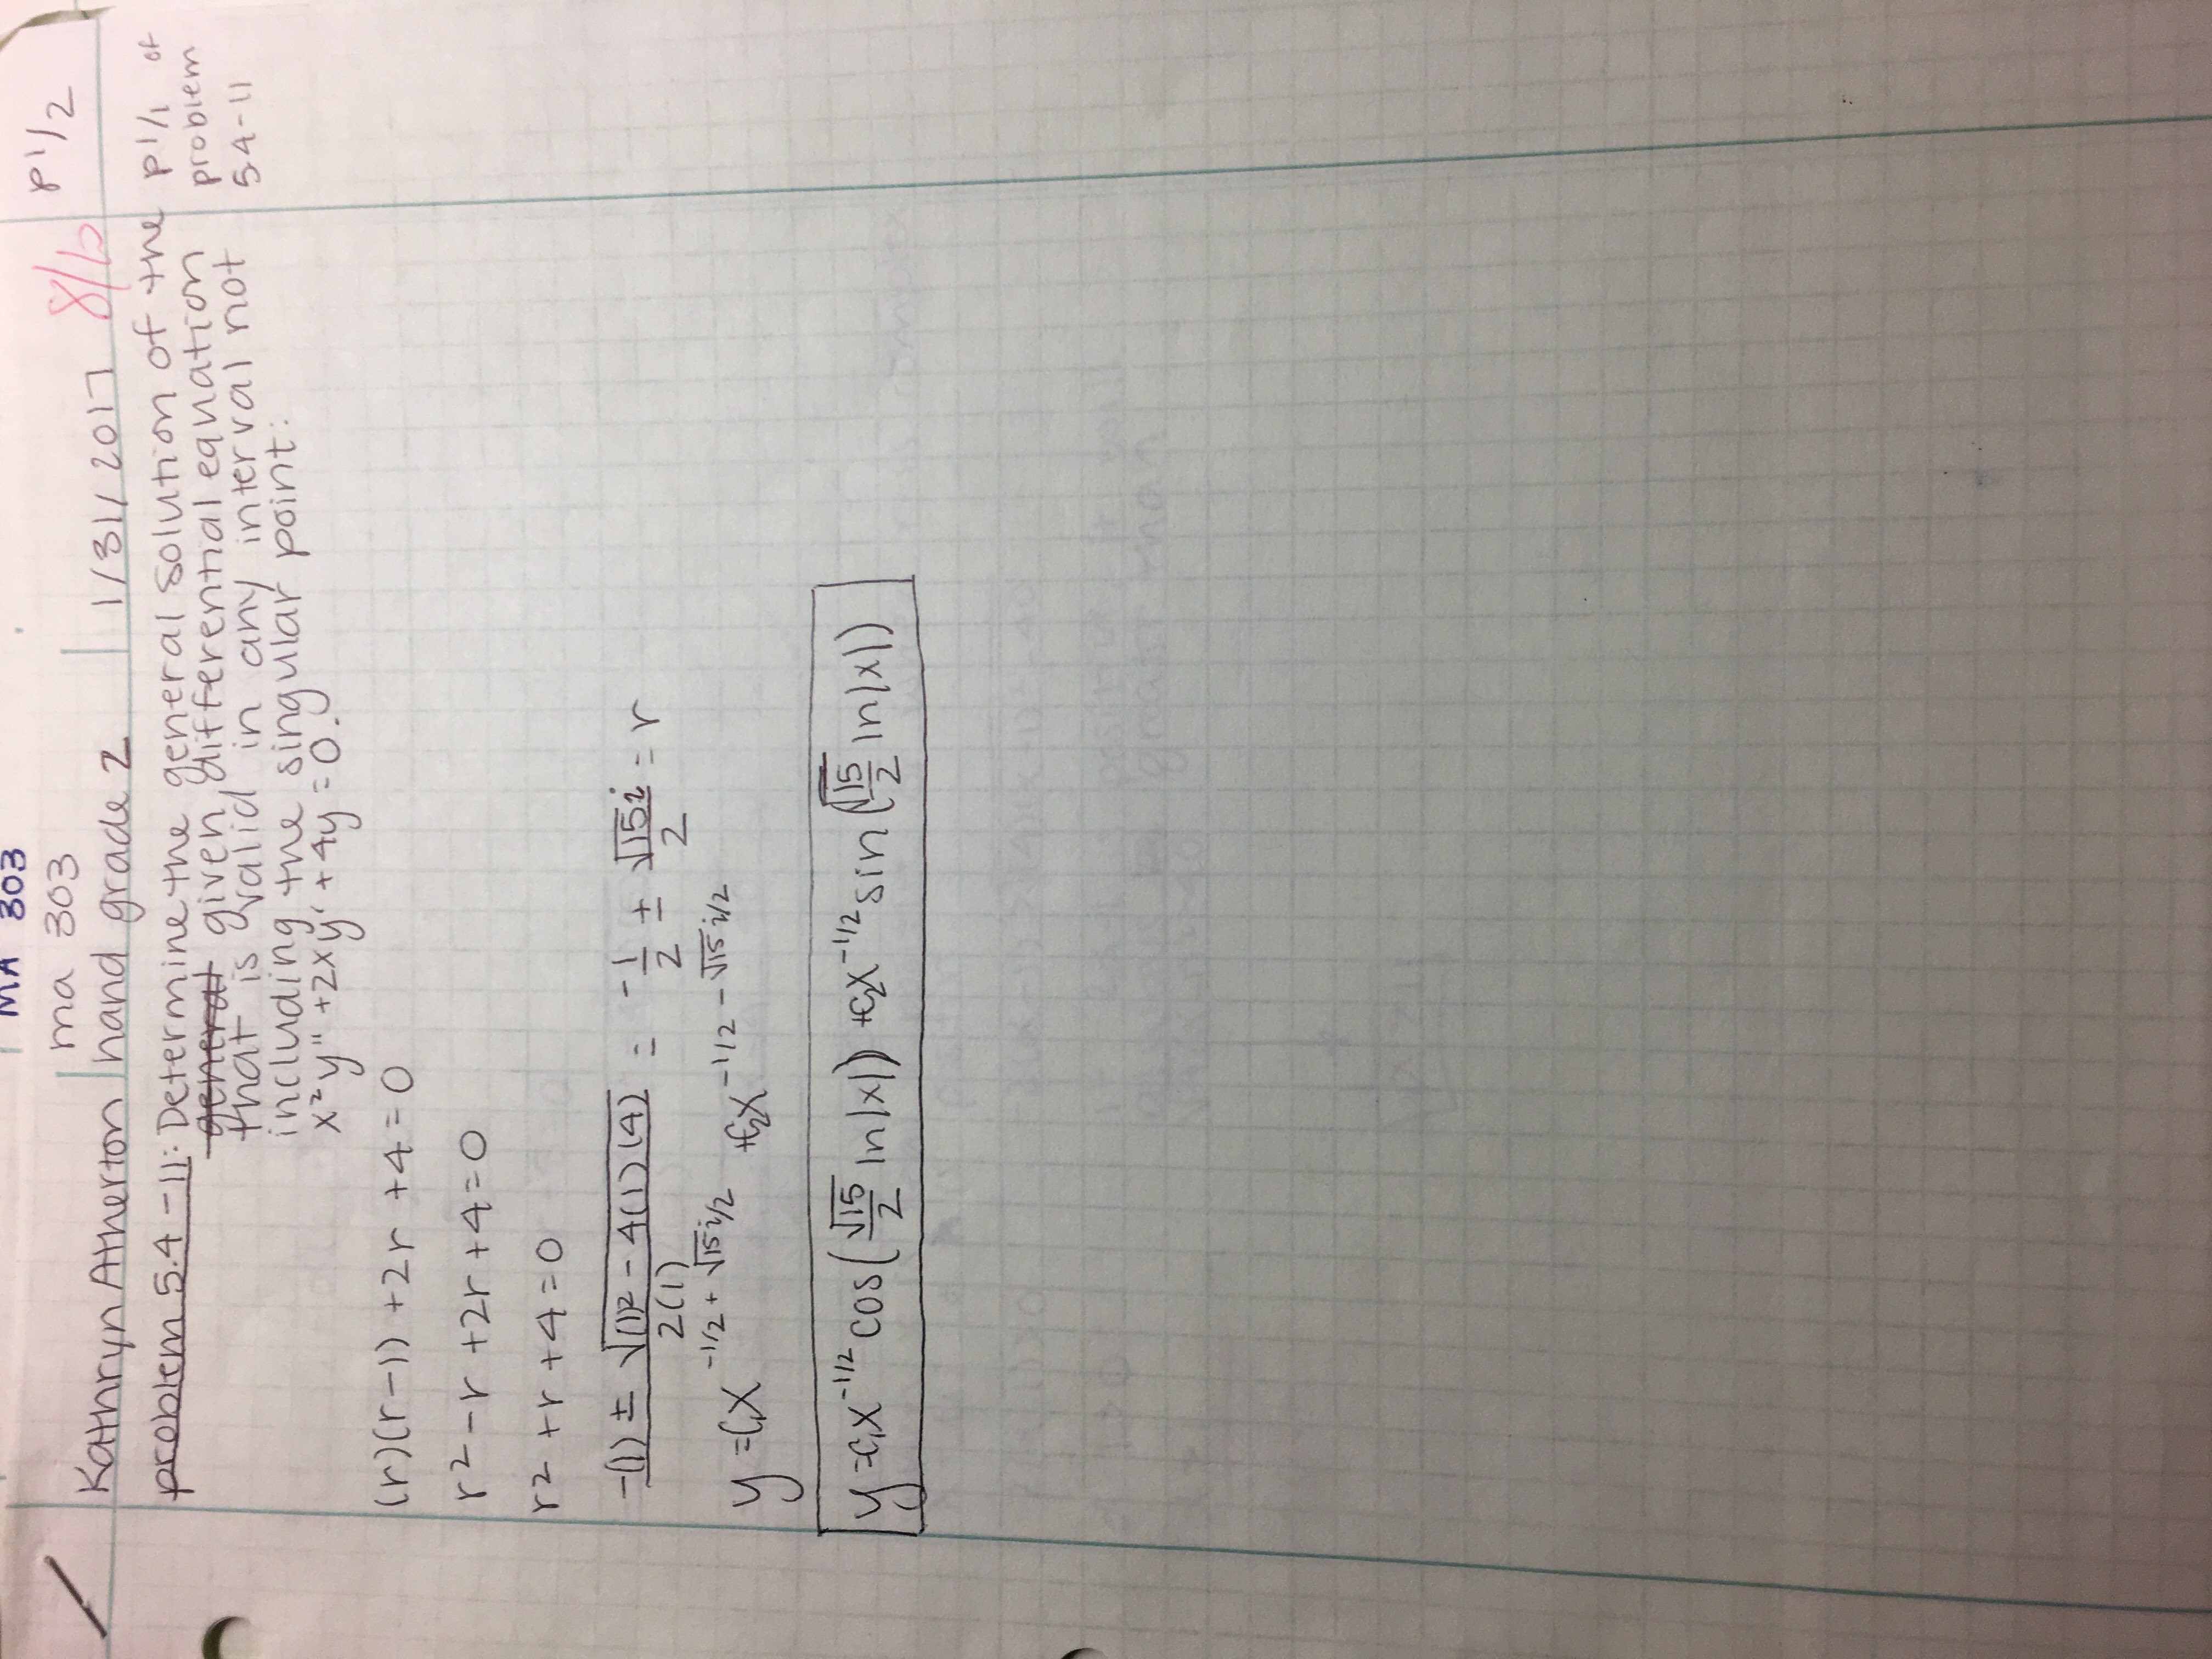 MA 303
ma 303
Kathryn Atherton | hand grade 2 | 1/31/2017 8/10 P 1/2
problem 5.4-11: Determine the general solution of the
general given differential equation
that is valid in any interval not
including the singular point:
x²y" + 2xy' + 4y = 0.
P 1/1 of
problem
5.4-11
(r)(r-1) + 2r + 4 = 0
r² - r + 2r + 4 = 0
r² + r + 4 = 0
-(1) ± √(1)² - 4(1)(4) / 2(1) = -1/2 ± √15i/2 = r
y = c₁x^(-1/2 + √15i/2) + c₂x^(-1/2 - √15i/2)
y = c₁x^(-1/2) cos(√15/2 ln|x|) + c₂x^(-1/2) sin(√15/2 ln|x|)